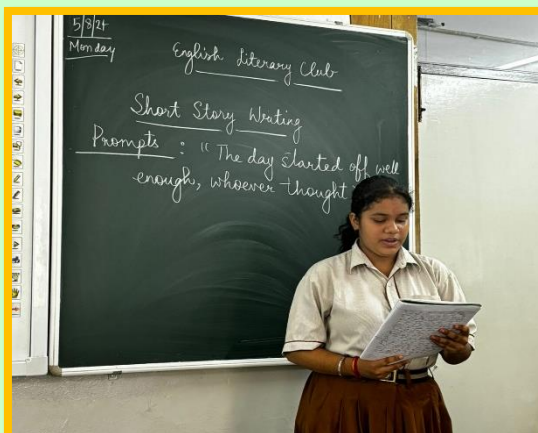 5/8/24
Monday
English Literary Club
Short Story Writing
Prompts : "The day started off well
enough, whoever thought